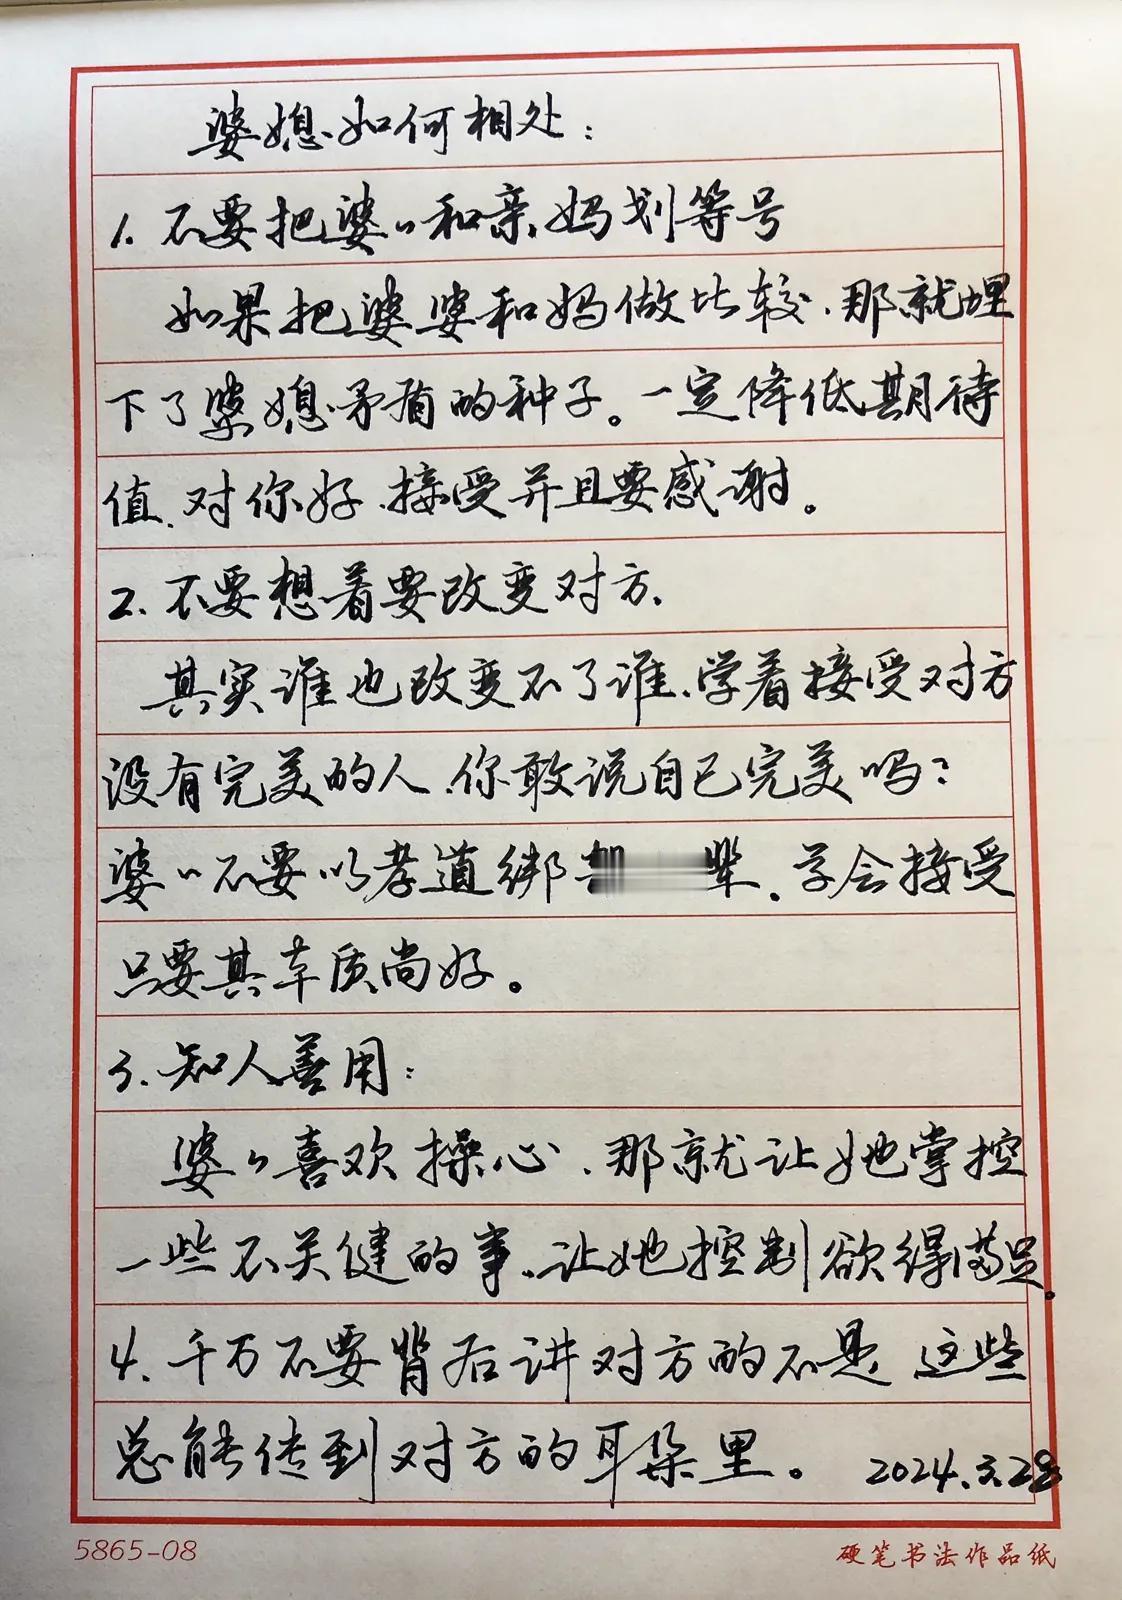 婆媳如何相处：
1.不要把婆〃和亲妈划等号
如果把婆婆和妈做比较.那就埋
下了婆媳矛盾的种子。一定降低期待
值.对你好.接受并且要感谢。
2.不要想着要改变对方.
其实谁也改变不了谁.学着接受对方
没有完美的人.你敢说自己完美吗？
婆〃不要以孝道绑 辈.学会接受
只要其本质尚好。
3.知人善用：
婆〃喜欢操心.那就让她掌控
一些不关健的事.让她控制欲得满足.
4.千万不要背后讲对方的不是 这些
总能传到对方的耳朵里。2024.3.28
5865-08 硬笔书法作品纸